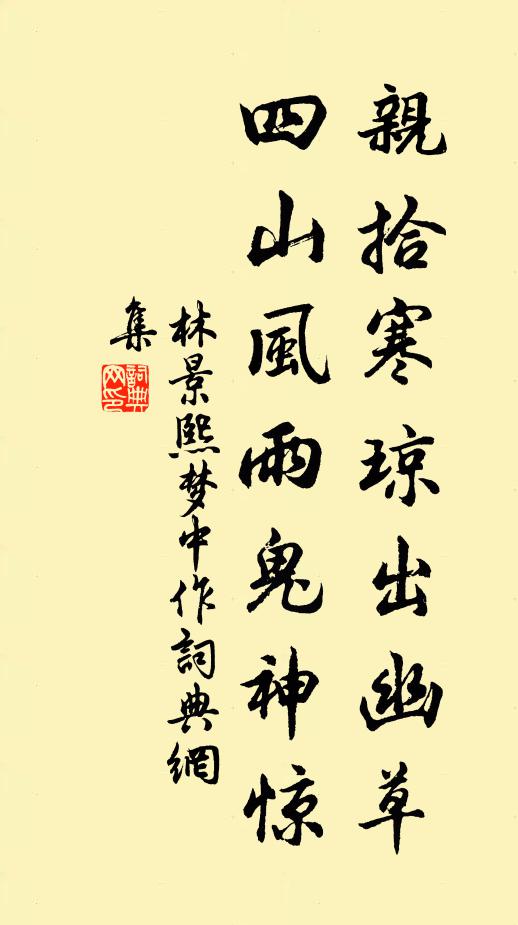 親拾寒琼出幽草
四山風雨鬼神惊
林景熙梦中作詞典網
集
詞典網印